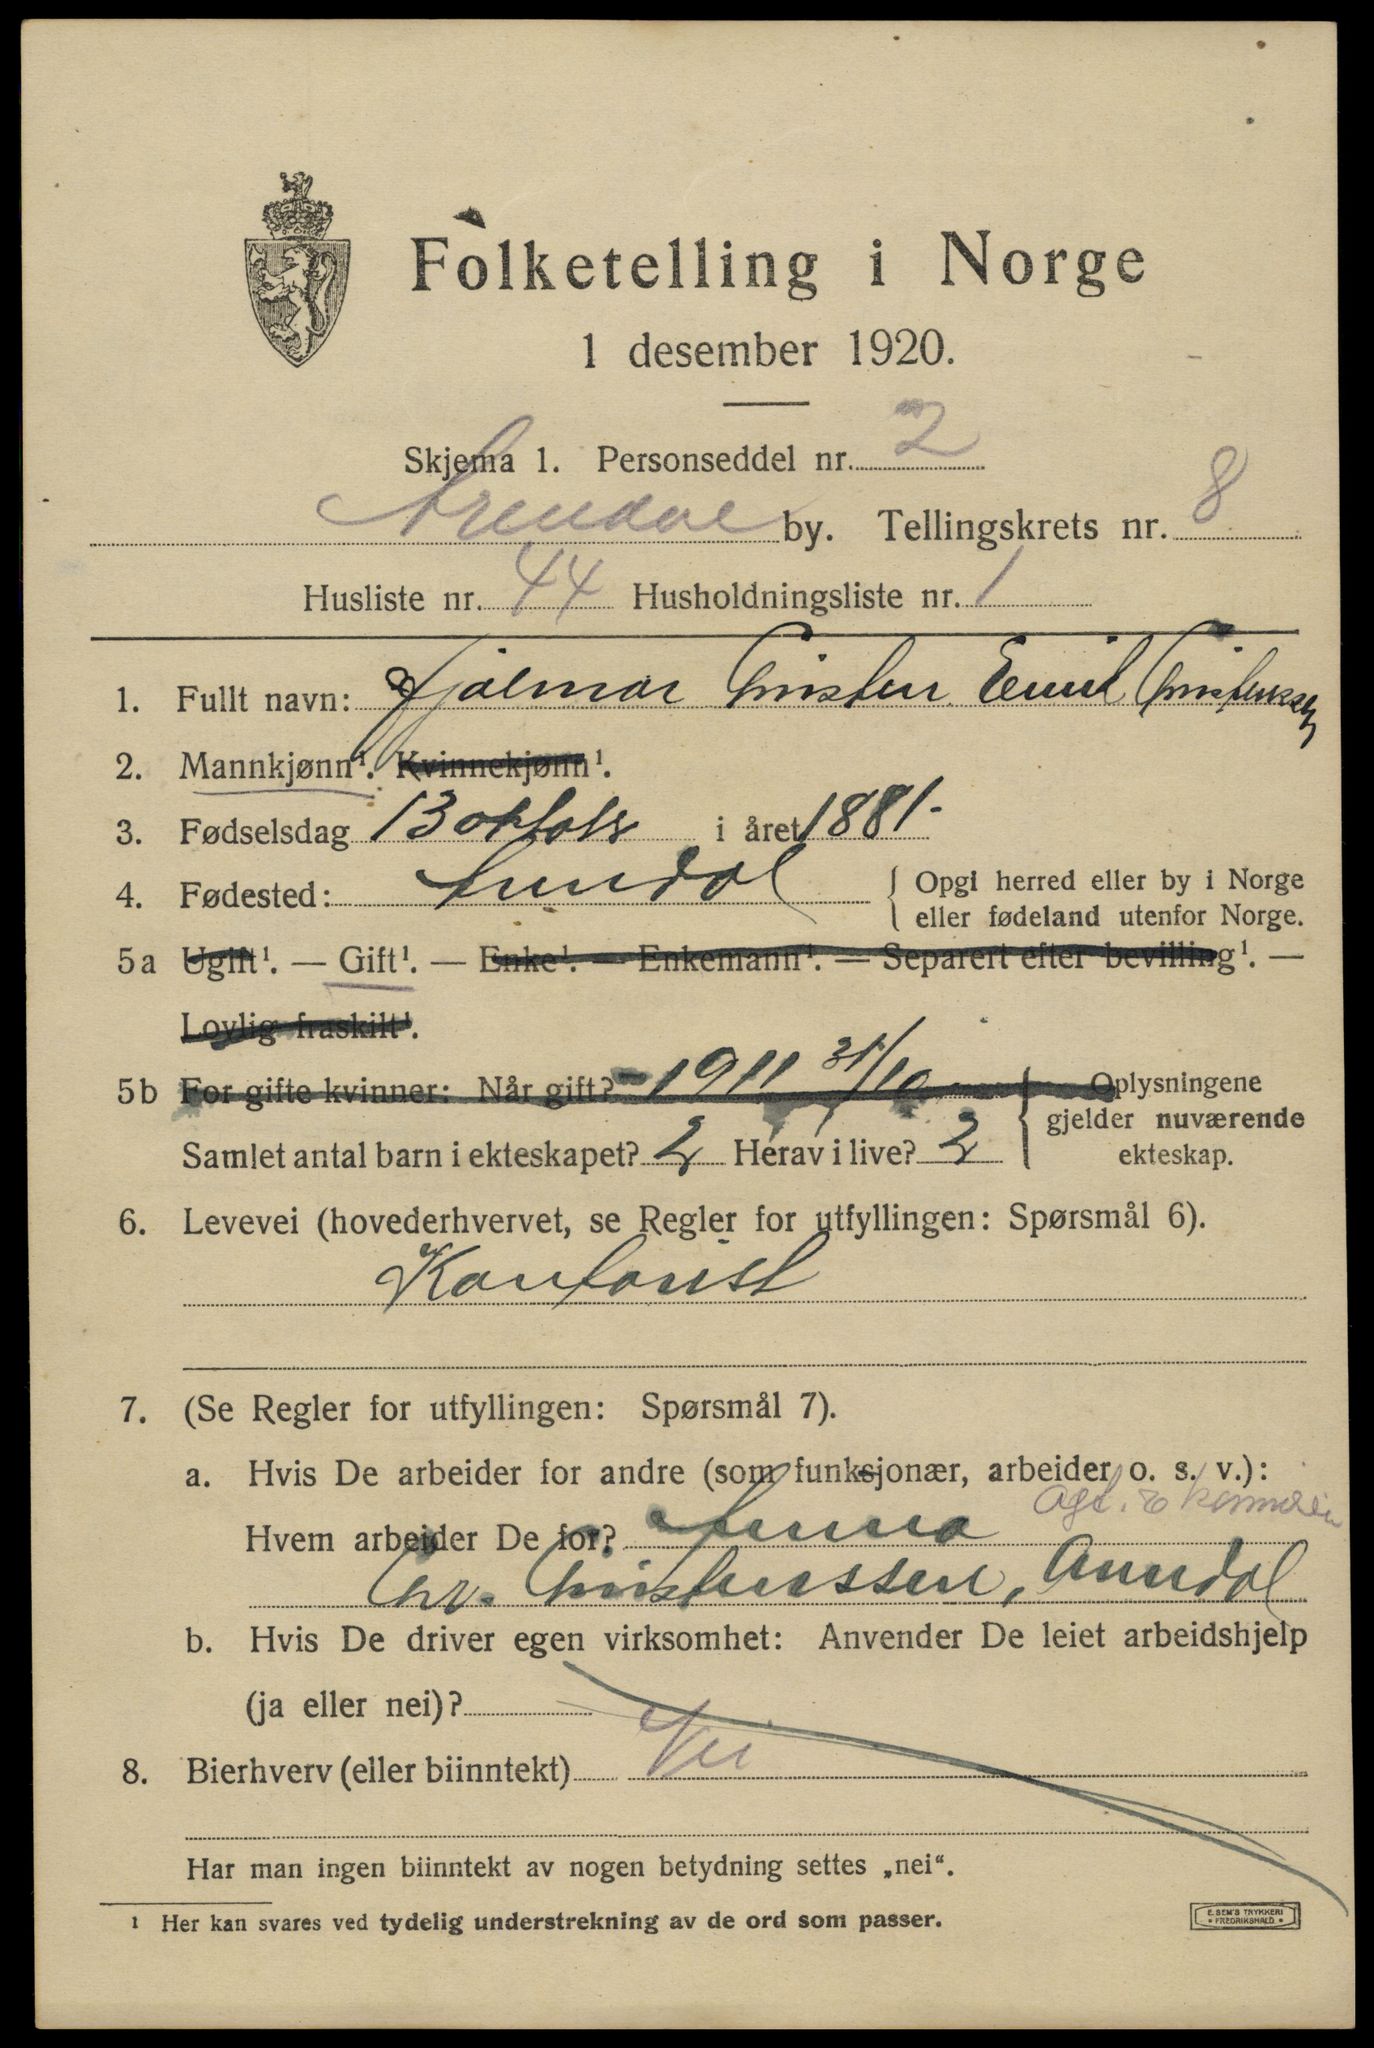 Folketelling i Norge
1 desember 1920.
Skjema 1. Personseddel nr. 2
Arendal by. Tellingskrets nr. 8
Husliste nr. 44 Husholdningsliste nr. 1
1. Fullt navn: Hjalmar Christen Emil Christenssen
2. Mannkjønn¹. Kvinnekjønn¹.
3. Fødselsdag 13 oktobr i året 1881-
4. Fødested: Arendal { Opgi herred eller by i Norge
eller fødeland utenfor Norge.
5a Ugift¹. — Gift¹. — Enke¹. — Enkemann¹. — Separert efter bevilling¹. —
Lovlig fraskilt¹.
5b For gifte kvinner: Når gift? 1911 31/10 { Oplysningene
gjelder nuværende
ekteskap.
Samlet antal barn i ekteskapet? 2 Herav i live? 2
6. Levevei (hovederhvervet, se Regler for utfyllingen: Spørsmål 6).
Kontorist
7. (Se Regler for utfyllingen: Spørsmål 7).
a. Hvis De arbeider for andre (som funksjonær, arbeider o. s. v.):
Hvem arbeider De for? Firma Agt.
Chr. Christenssen, Arendal
b. Hvis De driver egen virksomhet: Anvender De leiet arbeidshjelp
(ja eller nei)?
8. Bierhverv (eller biinntekt) Nei
Har man ingen biinntekt av nogen betydning settes „nei“.
¹ Her kan svares ved tydelig understrekning av de ord som passer.
E. SEM'S TRYKKERI
FREDRIKSHALD